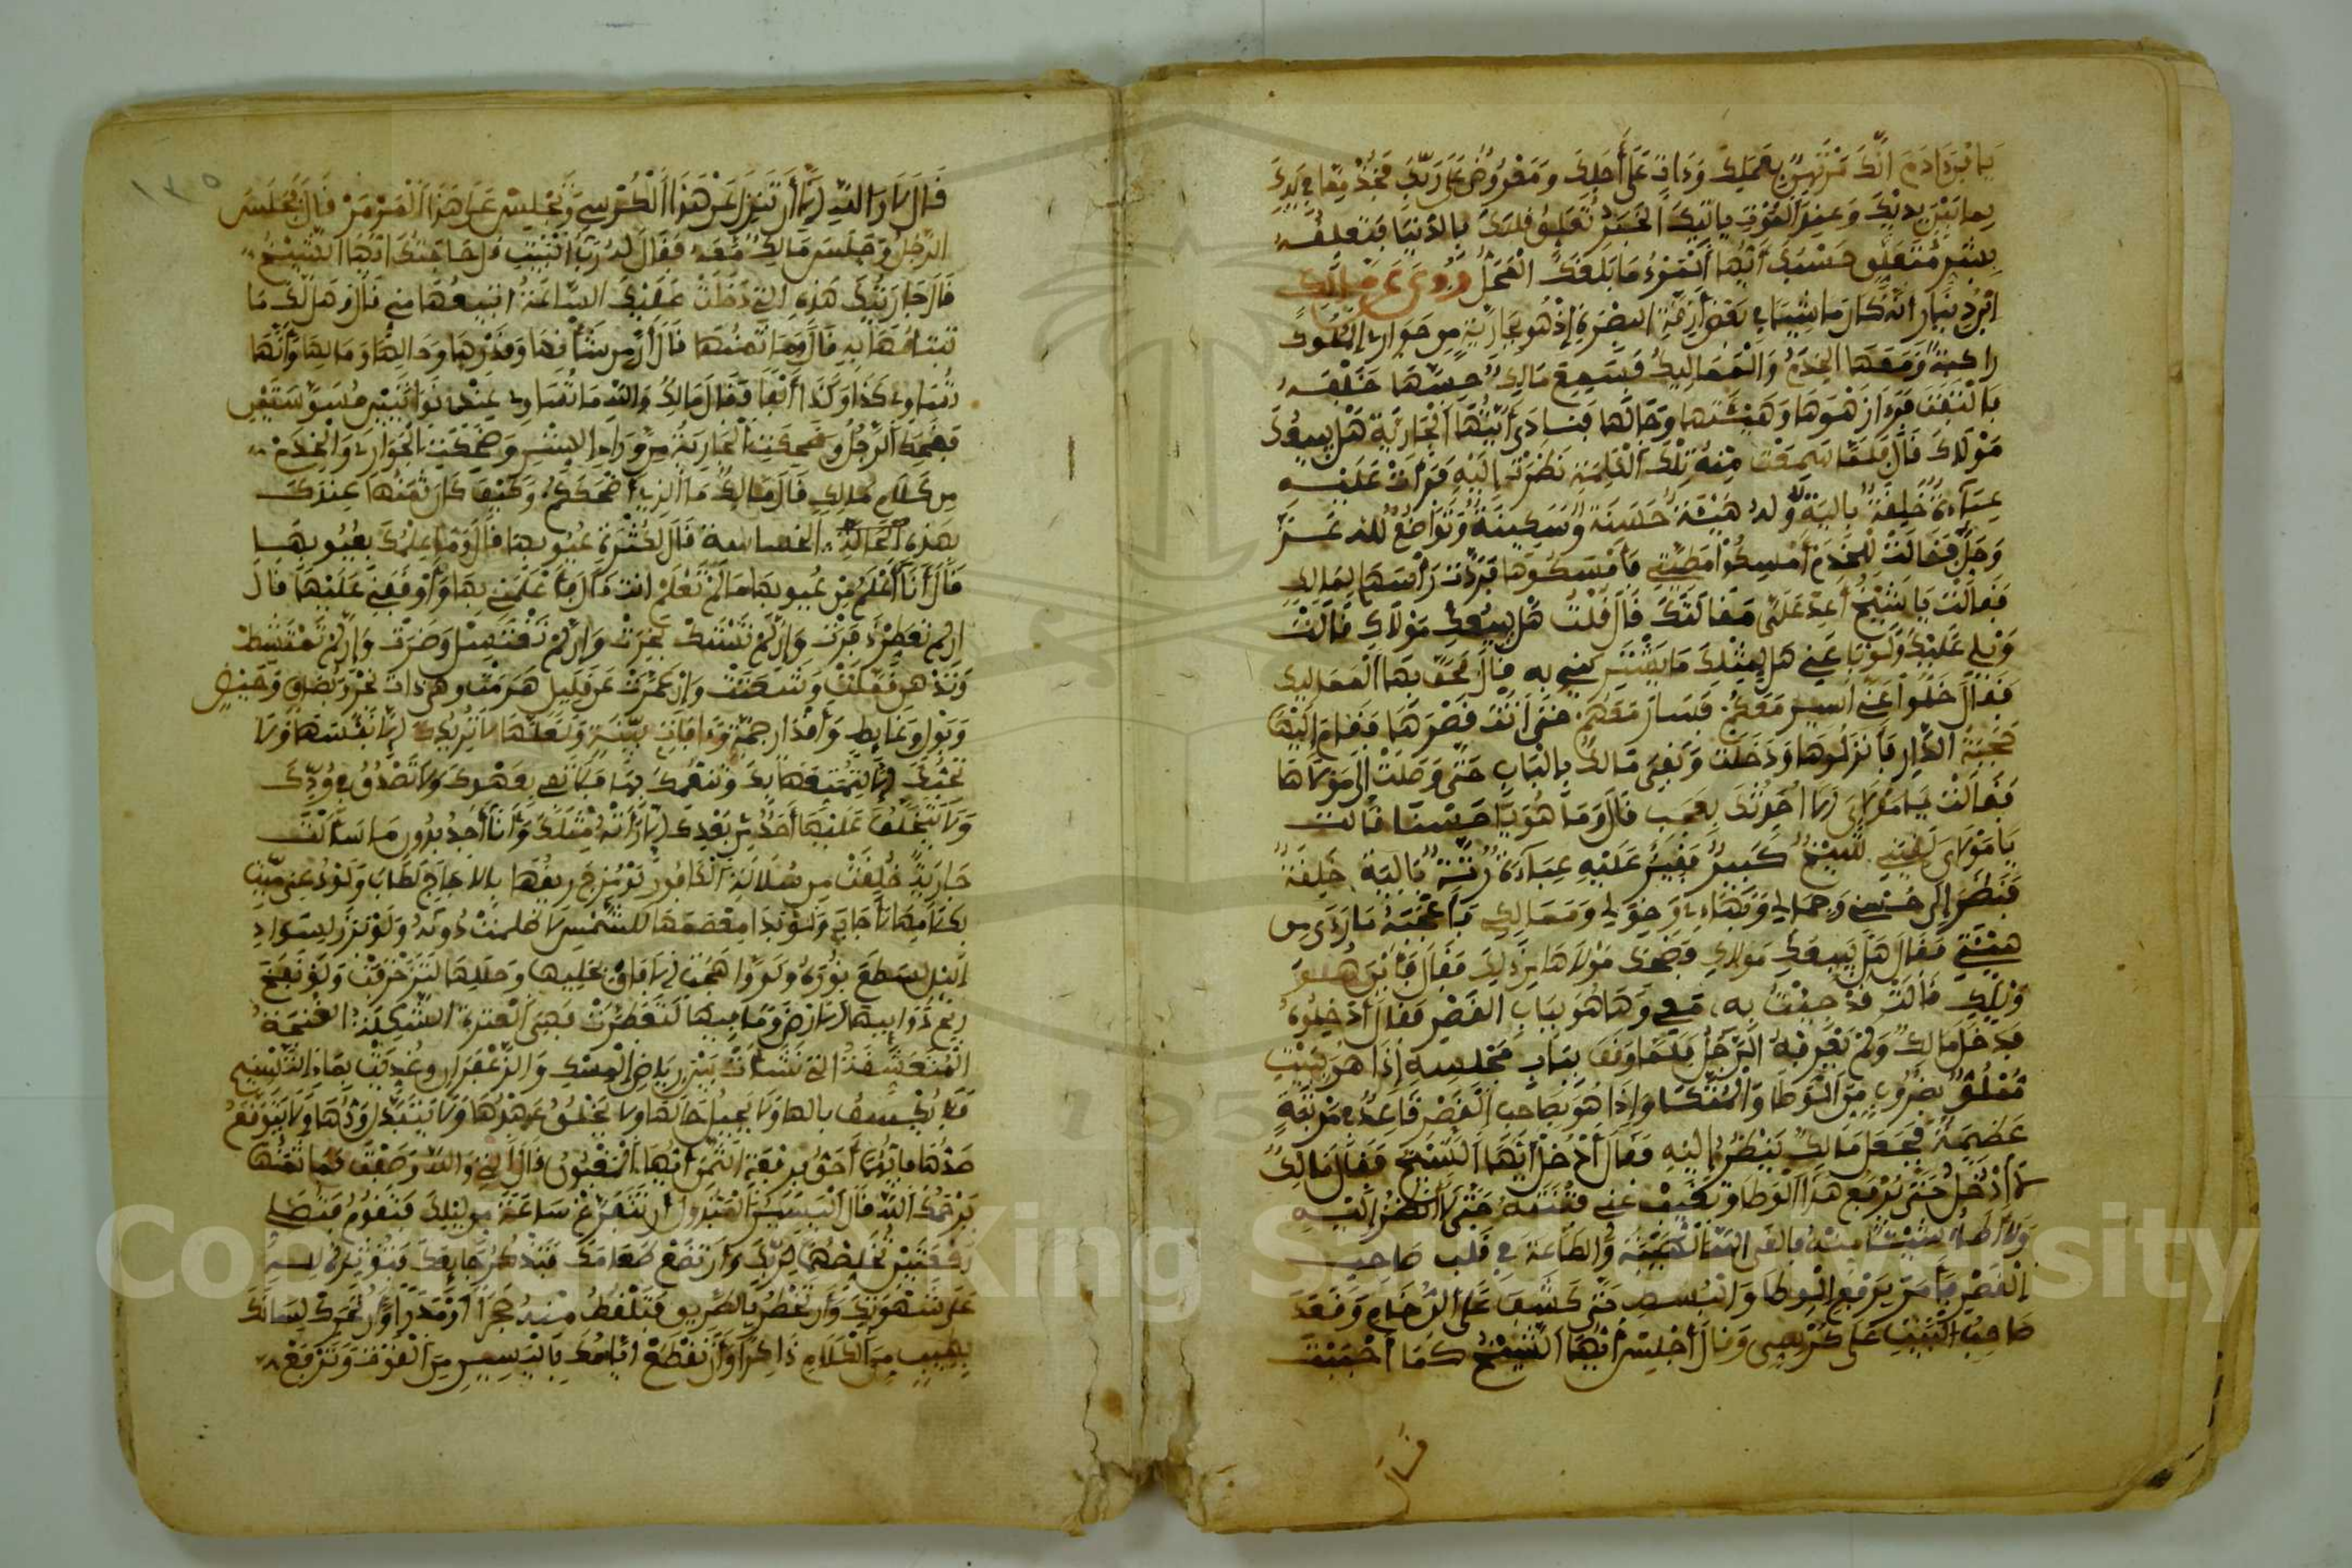 يا ابن ادم انك مرتهن بعملك وءات على أجلك ومعروض على ربك فخذ مما في يديك
لما بين يديك وعند الموت ياتيك الخبر تعلق قلبك بالدنيا فتعلقه
بشر متعلق حسبك أيها المرء ما بلغك المحل وروي عن مالك
ابن دينار أنه كان ماشيا في بعض أزقة البصرة إذ هو بجارية من جوار الملوك
راكبة ومعها الخدم والمماليك فسمع مالك حسها خلفه
بالتفت فرءا زهوها وهيئتها وحالها فنادى أيتها الجارية هل يبيعك
مولاك قال فلما سمعت منه تلك الكلمة نظرت إليه فرأت عليه
عباءة خلقة بالية وله هيئة حسنة وسكينة وتواضع لله عز
وجل فقالت للخدم أمسكوا مطيتي فأمسكوها فردت رأسها لمالك
فقالت يا شيخ أعد علي مقالتك قال قلت هل يبيعك مولاك قالت
ويلي عليك ولو باعني هل لمثلك ما يشتريني به قال فحف بها المماليك
فقال خلوا عني أسير معكم فسار معهم حتى أتت قصرها فقام إليها
حجبة الدار فأنزلوها ودخلت وبقي مالك بالباب حتى وصلت إلى مولاها
فقالت يا مولاي ألا أحدثك بعجب قال وما هو يا حسنا قالت
يا مولاي لقيني شيخ كبير فقير عليه عباءة رثة بالية خلقة
فنظر إلى حسني وجمالي وبهاءي وخولي ومماليك فأعجبه ما رءى من
هيئتي فقال هل يبيعك مولاك فضحك مولاها من ذلك فقال فأين هو
ويلك قالت قد جئت به معي وها هو بباب القصر فقال أدخلوه
فدخل مالك ولم يعرفه الرجل فلما وقف بباب مجلسه إذا هو ببيت
مملوء بضروب من الوطا والمتكا وإذا هو بصاحب القصر قاعد في مرتبة
عظيمة فجعل مالك ينظر إليه فقال أدخل أيها الشيخ فقال مالك
لا أدخل حتى ترفع هذا الوطا وتغيب عني فتنته حتى لا أنظر إليه
ولا أطأ شيئا منه فألقى الله الهيبة والطاعة في قلب صاحب
القصر فأمر برفع الوطا والبسط حتى كشف على الرخام وقعد
صاحب البيت على كرسي وقال أجلس أيها الشيخ كما أحببت
قال
١٣٥
قال لا والله إلا أن تنزل عن هذا الكرسي وتجلس على هذا المرمر قال فجلس
الرجل وجلس مالك معه فقال له رب البيت قل حاجتك أيها الشيخ
قال جاريتك هذه التي دخلت عليك الساعة أتبيعها مني قال وهل لك ما
تبتاعها به قال وما ثمنها قال إن من شأنها وقدرها وحالها ومالها وأنها
تساوي كذا وكذا ألفا فقال مالك والله ما تساوي عندي نواتين مسوستين
فضحك الرجل وضحكت الجارية من وراء الستر وضحكت الجوار والخدم
من كلام مالك قال مالك ما الذي أضحككم وكيف كان ثمنها عندك
بهذه الحالة الخسايسة قال لكثرة عيوبها قال وما علمك بعيوبها
قال أنا أعلم من عيوبها ما لم تعلم أنت قال فأعلمني بها وأوقفني عليها قال
إن لم تعطر ذفرت وإن لم تستك بخرت وإن لم تغتسل وضرت وإن لم تمتشط
وتدهن قملت وتشعثت وإن عمرت عن قليل هرمت وهي ذات نخر وبصاق وحيض
وبول وغايط وأقذار جمة وءافات بينة ولعلها لا تريدك إلا لنفسها ولا
تحبك إلا لتمتعها بك وتنعمك بها فلا تفي بعهدك ولا تصدق في ودك
ولا يتخلف عليها أحد من بعدك إلا رأته مثلك وأنا أجد بدون ما سألت
جارية خلقت من سلالة الكافور لو مزج ريقها بالأجاج لطاب ولو دعي ميت
بكلامها لأجاب ولو بدا معصمها للشمس لأظلمت دونه ولو برز لسواد
اليل لسطع نوره ولو واجهت الأفاق بحليها وحللها لتزخرفت ولو نفح
ريح ذوابيها الأرض وما فيها لتعطرت فهي العترة الشكلة الغنجة
المتعشقة التي نشأت بين رياض المسك والزعفران وغديت بماء التسنيم
فلا يكسف بالها ولا يحيل حالها ولا يخلق عهدها ولا يتبدل ودها ولا يتوقع
صدها فأيها أحق برفعة الثمن أيها المغبون قال التي والله وصفت فما ثمنها
يرحمك الله قال اليسير المبذول أن تتفرغ ساعة من ليلك فتقوم فتصلي
ركعتين تخلصها لربك وأن تضع طعامك فتذكر جايعك فتؤثره لله
على شهوتك وأن تخطر بالطريق فتلفظ منه حجرا أو مدرا وأن تحرك لسانك
بطيب من الكلام ذاكرا وأن تقطع أيامك باليسير من القوت وترفع